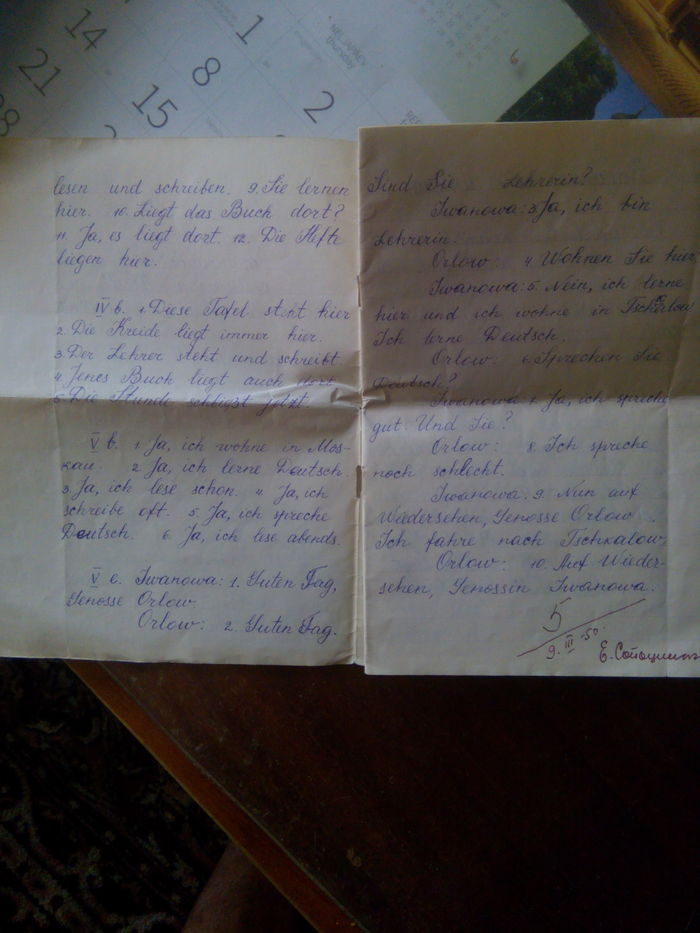 14
1
NEL-APAEV
thursday
6
21
8
15
2
28
2
lesen und schreiben. 9. Sie lernen
hier. 10. Liegt das Buch dort?
11. Ja, es liegt dort. 12. Die Hefte
liegen hier.
IV b. 1. Diese Tafel steht hier
2. Die Kreide liegt immer hier.
3. Der Lehrer steht und schreibt.
4. Jenes Buch liegt auch dort.
5. Die Stunde schließt jetzt.
V b. 1. Ja, ich wohne in Mos-
kau. 2. Ja, ich lerne Deutsch.
3. Ja, ich lese schon. 4. Ja, ich
schreibe oft. 5. Ja, ich spreche
Deutsch. 6. Ja, ich lese abends.
V c. Iwanowa: 1. Guten Tag,
Genosse Orlow.
Orlow: 2. Guten Tag.
Sind Sie Lehrerin?
Iwanowa: 3. Ja, ich bin
Lehrerin.
Orlow: 4. Wohnen Sie hier,
Iwanowa: 5. Nein, ich lerne
hier und ich wohne in Tschkalow
Ich lerne Deutsch.
Orlow: 6. Sprechen Sie
Deutsch?
Iwanowa: 7. Ja, ich spreche
gut. Und Sie?
Orlow: 8. Ich spreche
noch schlecht.
Iwanowa: 9. Nun auf
Wiedersehen, Genosse Orlow.
Ich fahre nach Tschkalow.
Orlow: 10. Auf Wieder-
sehen, Genossin Iwanowa.
5
9. III. 50.
Е.